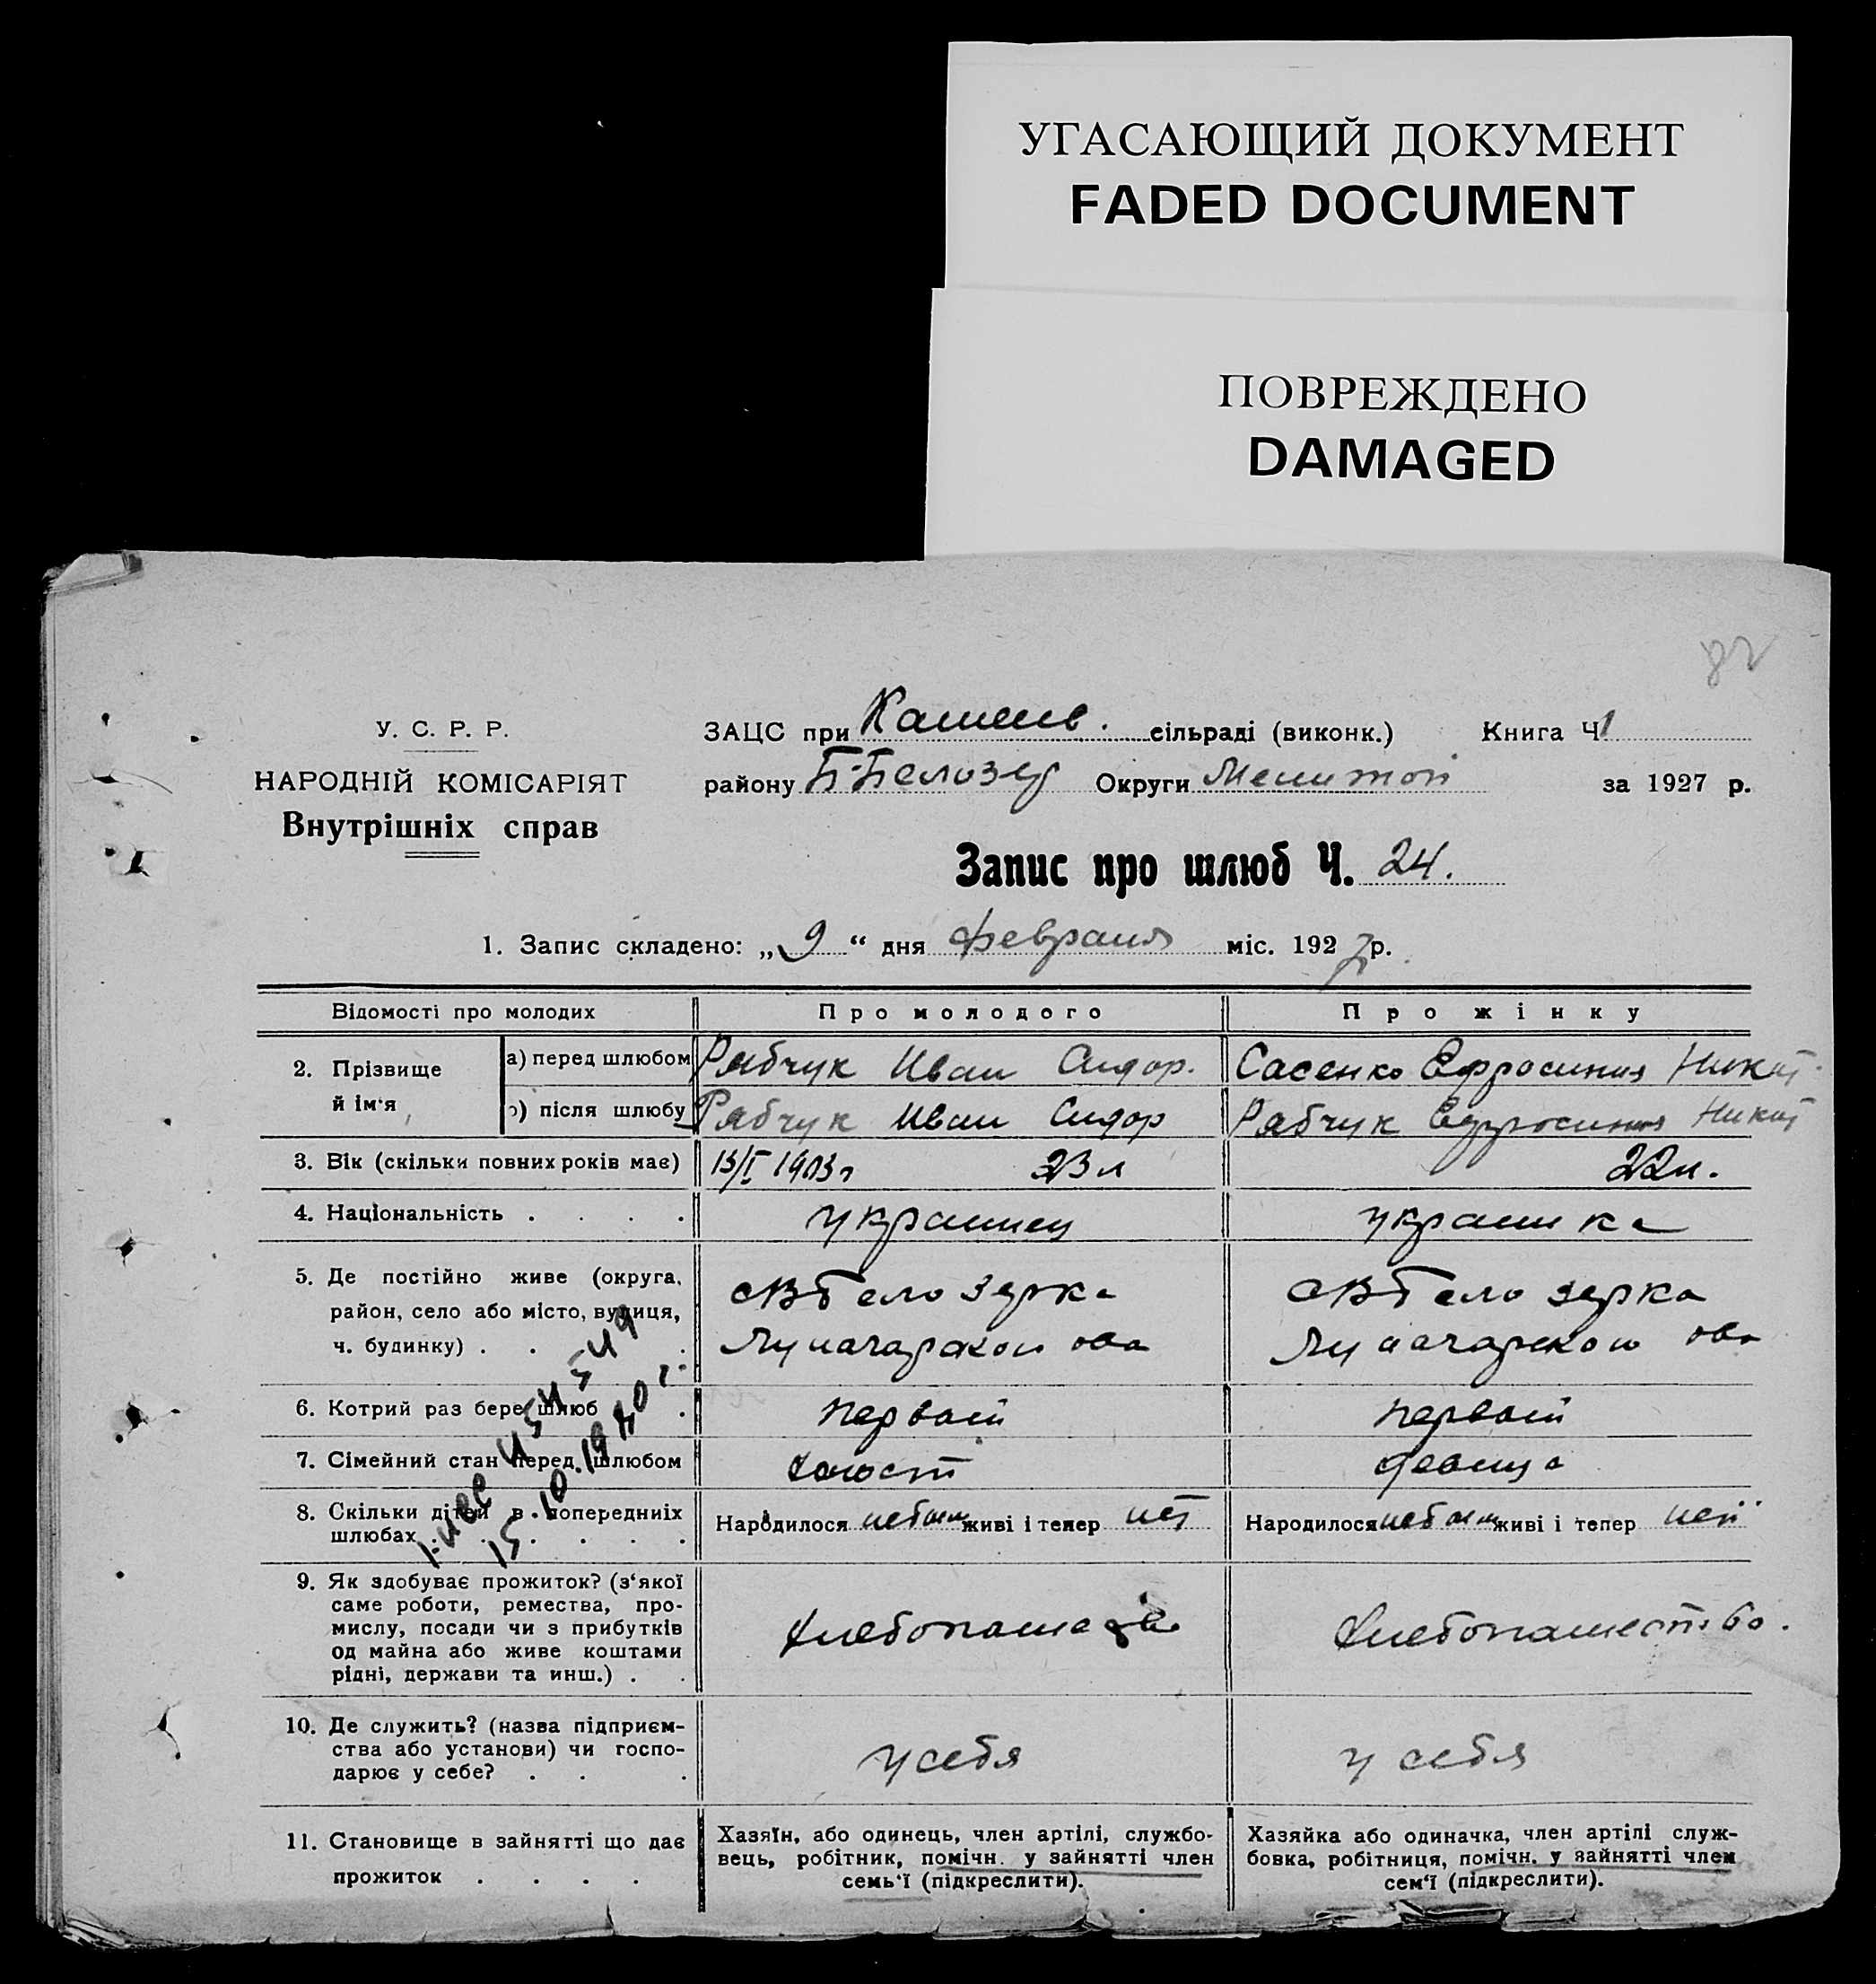 УГАСАЮЩИЙ ДОКУМЕНТ
FADED DOCUMENT
ПОВРЕЖДЕНО
DAMAGED
82
У. С. Р. Р.
НАРОДНІЙ КОМІСАРІЯТ
Внутрішніх справ
ЗАЦС при Камене. сільраді (виконк.) Книга Ч 1
району Б-Белозер Округи Мелитоп за 1927 р.
Запис про шлюб Ч. 24.
1. Запис складено: „9“ дня февраля міс. 1927 р.
Відомості про молодих Про молодого Про жінку
2. Прізвище й ім'я
а) перед шлюбом Рябчук Иван Сидор. Сасенко Ефросиния Никит.
б) після шлюбу Рябчук Иван Сидор Рябчук Ефросиния Никит
3. Вік (скільки повних років має) 13/I 1903 г 23 л 22 л.
4. Національність . . . . украинец украинка
5. Де постійно живе (округа,
район, село або місто, вулиця,
ч. будинку) . . . .
с В Белозерка
Луначарского
с В Белозерка
Луначарского
6. Котрий раз бере шлюб . первый первый
7. Сімейний стан перед шлюбом холост девица
8. Скільки дітей в попередніх
шлюбах . . . . . .
Народилося небыли живі і тепер нет Народилося небыли живі і тепер нет
15.10.1940 г.
9. Як здобуває прожиток? (з'якої
саме роботи, ремества, про-
мислу, посади чи з прибутків
од майна або живе коштами
рідні, держави та инш.) . .
хлебопашество хлебопашество.
10. Де служить? (назва підприєм-
ства або установи) чи госпо-
дарює у себе? . . .
у себя у себя
11. Становище в зайнятті що дає
прожиток . . . .
Хазяїн, або одинець, член артілі, службо-
вець, робітник, помічн. у зайнятті член
семь'ї (підкреслити).
Хазяйка або одиначка, член артілі служ-
бовка, робітниця, помічн. у зайнятті член
сем'ї (підкреслити).